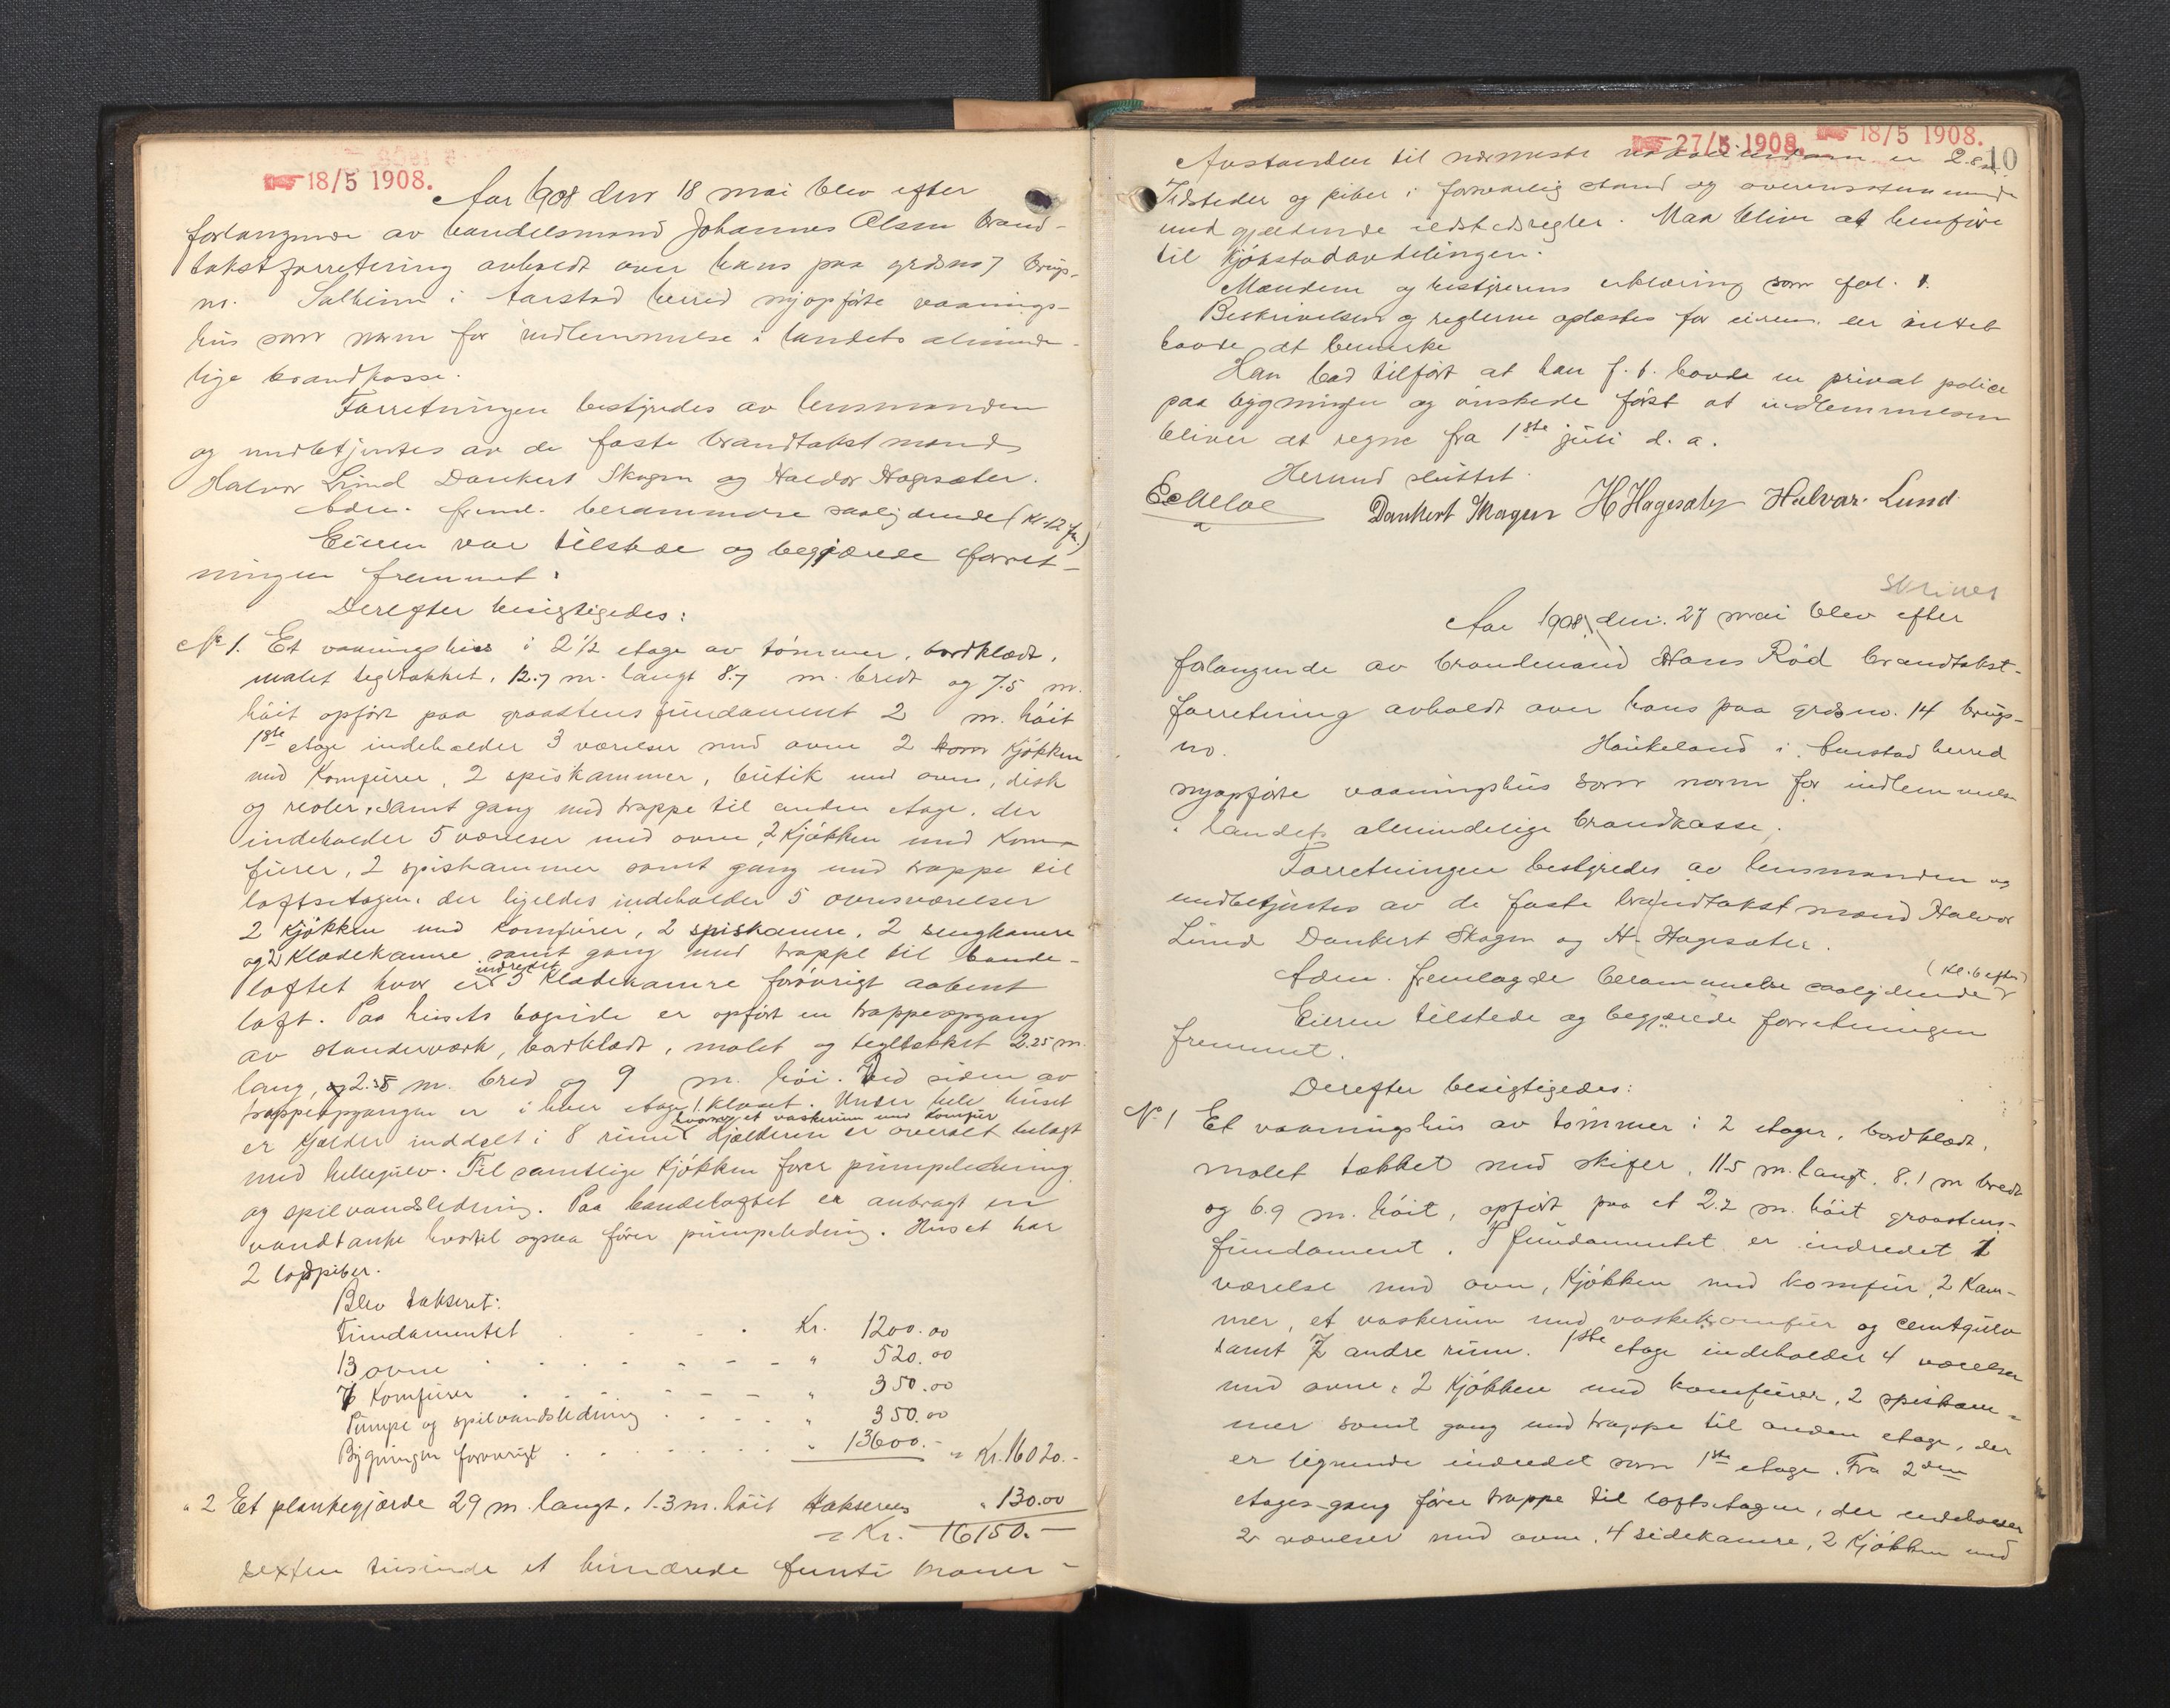 18/5 1908.
Aar 1908 den 18 mai blev efter
forlangende av handelsmand Johannes Olsen brand-
takstforretning avholdt over hans paa grdsno 7 brugs-
nr. Solheim i Aarstad herred nyopførte vaanings-
hus som norm for indlemmelse i landets alminde-
lige brandkasse.
Forretningen bestyredes av lensmanden
og medbetjentes av de faste brandtakstmænd
Halvor Lund Dankert Skagen og Haldor Hagesæter.
Adm. freml. berammelse saalydende (Kl. 12 fm.)
Eieren var tilstede og begjærede forret-
ningen fremmet.
Derefter besigtigedes:
No 1. Et vaaningshus i 2 1/2 etage av tømmer, bordklædt,
malet tegltækket, 12.7 m. langt 8.7 m. bredt og 7.5 m.
høit opført paa graastens fundament 2 m. høit
1ste etage indeholder 3 værelser med ovne 2 Kjøkken
med Komfurer, 2 spiskammer, butik med ovn, disk
og reoler, samt gang med trappe til anden etage. der
indeholder 5 værelser med ovne, 2 Kjøkken med Kom-
furer, 2 spiskammer samt gang med trappe til
loftsetagen, der ligeledes indeholder 5 ovnsværelser
2 Kjøkken med Komfurer, 2 spiskamre, 2 sengkamre
og 2 Klædekamre samt gang med trappe til bande-
loftet hvor er indredet 5 Klædekamre forøvrigt aabent
loft. Paa husets bagside er opført en trappeopgang
av standerværk, bordklædt, malet og tegltækket 2.25 m.
lang, og 2.35 m. bred og 9 m. høi. Ved siden av
trappeopgangen er i hver etage 1. Kloset. Under hele huset
er Kjælder inddelt i 8 rum hvorav et vaskerum med Komfur Kjælderen er overalt belagt
med hellegulv. Til samtlige Kjøkken fører pumpeledning
og spilvandsledning. Paa bandeloftet er anbragt en
vandtank hvortil ogsaa fører pumpeledning. Huset har
2 lødpiber.
Blev takseret:
Fundamentet . . . . Kr. 1200.00
13 ovne . . . . " 520.00
6 Komfurer . . . . " 350.00
Pumpe og spilvandsledning . . . . " 350.00
Bygningen forøvrigt . . . . " 13600.- = Kr. 16020.-
" 2 Et plankegjærde 29 m. langt, 1.3 m. høit takseres " 130.00
= Kr. 16150.-
sexten tusinde et hundrede femti kroner -
27/5 1908 18/5 1908.
10
Avstanden til nærmeste er 2.8 m.
Ildsteder og piber i forsvarlig stand og overensstemmende
med gjeldende ildstedsregler. Maa blive at henføre
til Kjøkstadavdelingen.
Mændene og bestyrerens erklæring som fol. 1.
Beskrivelsen og reglerne oplæstes for eieren, der intet
havde at bemerke
Han bad tilført at han f. t. havde en privat police
paa bygningen og ønskede først at indlemmelsen
bliver at regne fra 1ste juli d. a.
Hermed sluttet.
Dankert Skagen H Hagesæter Halvor Lund
Skriver
Aar 1908, den 27 mai blev efter
forlangende av brandmand Hans Rød brandtakst-
forretning avholdt over hans paa grdsno. 14 brugs-
no. Haukeland i Aarstad herred
nyopførte vaaningshus som norm for indlemmelse
i landets almindelige brandkasse.
Forretningen bestyredes av lensmanden og
medbetjentes av de faste brandtakstmænd Halvor
Lund Dankert Skagen og H. Hagesæter.
Adm. fremlagde berammelse saalydende (Kl. 6 efter)
Eieren tilstede og begjærede forretningen
fremmet.
Derefter besigtigedes:
No 1 Et vaaningshus av tømmer i 2 etager, bordklædt,
malet tækket med skifer, 11.5 m. langt, 8.1 m bredt
og 6.9 m. høit, opført paa et 2.2 m. høit graastens-
fundament. I fundamentet er indredet 1
værelse med ovn, Kjøkken med komfur, 2 Kam-
mer, et vaskerum med vaskekomfur og cemtgulv
samt 7 andre rum. 1ste etage indeholder 4 værelser
med ovne, 2 Kjøkken med komfurer, 2 spiskam-
mer samt gang med trappe til anden etage, der
er lignende indredet som 1ste etage. Fra 2den
etages-gang fører trappe til loftsetagen, der indeholder
2 værelser med ovne, 4 sidekamre, 2 Kjøkken med